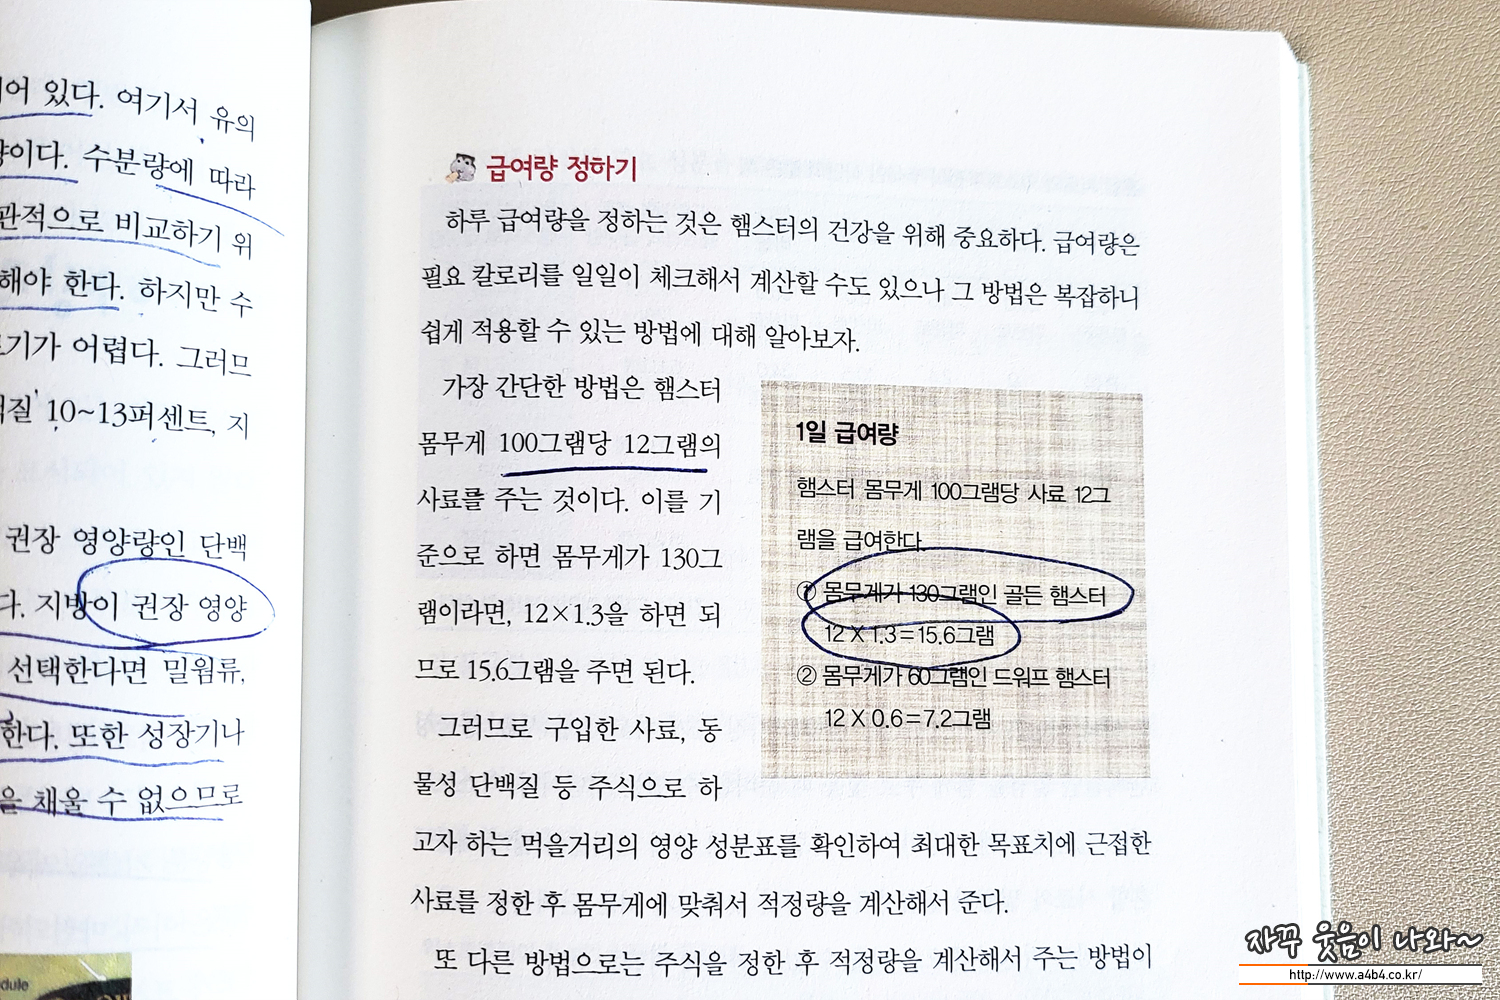 어 있다. 여기서 유의
이다. 수분량에 따라
관적으로 비교하기 위
해야 한다. 하지만 수
기가 어렵다. 그러므
질 10~13퍼센트, 지
권장 영양량인 단백
다. 지방이 권장 영양
선택한다면 밀웜류,
한다. 또한 성장기나
을 채울 수 없으므로
dule
급여량 정하기
하루 급여량을 정하는 것은 햄스터의 건강을 위해 중요하다. 급여량은
필요 칼로리를 일일이 체크해서 계산할 수도 있으나 그 방법은 복잡하니
쉽게 적용할 수 있는 방법에 대해 알아보자.
가장 간단한 방법은 햄스터
몸무게 100그램당 12그램의
사료를 주는 것이다. 이를 기
준으로 하면 몸무게가 130그
램이라면, 12×1.3을 하면 되
므로 15.6그램을 주면 된다.
그러므로 구입한 사료, 동
물성 단백질 등 주식으로 하
고자 하는 먹을거리의 영양 성분표를 확인하여 최대한 목표치에 근접한
사료를 정한 후 몸무게에 맞춰서 적정량을 계산해서 준다.
또 다른 방법으로는 주식을 정한 후 적정량을 계산해서 주는 방법이
1일 급여량
햄스터 몸무게 100그램당 사료 12그
램을 급여한다.
① 몸무게가 130그램인 골든 햄스터
12 X 1.3=15.6그램
② 몸무게가 60그램인 드워프 햄스터
12 X 0.6=7.2그램
자꾸 웃음이 나와~
http://www.a4b4.co.kr/